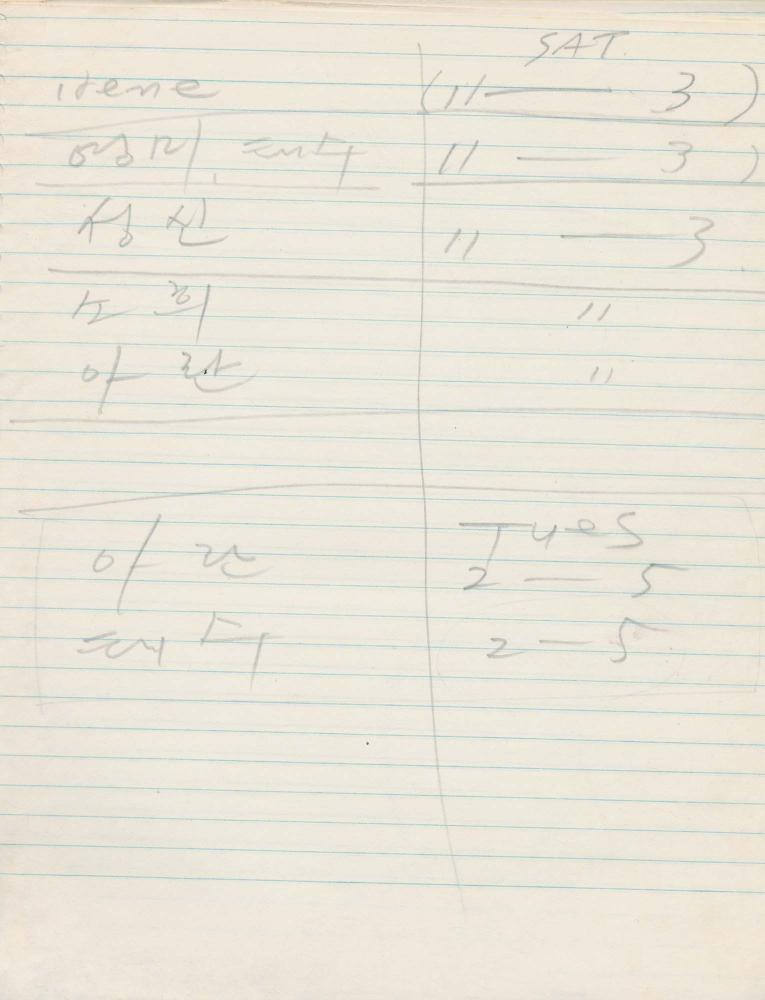 SAT.
Irene (11 — 3 )
영미, 태수 11 — 3 )
성신 11 — 3
소희 "
아란 "
Tues
아란 2 — 5
태수 2 — 5